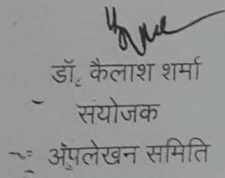 डॉ. कैलाश शर्मा
संयोजक
अंपुलेखन समिति